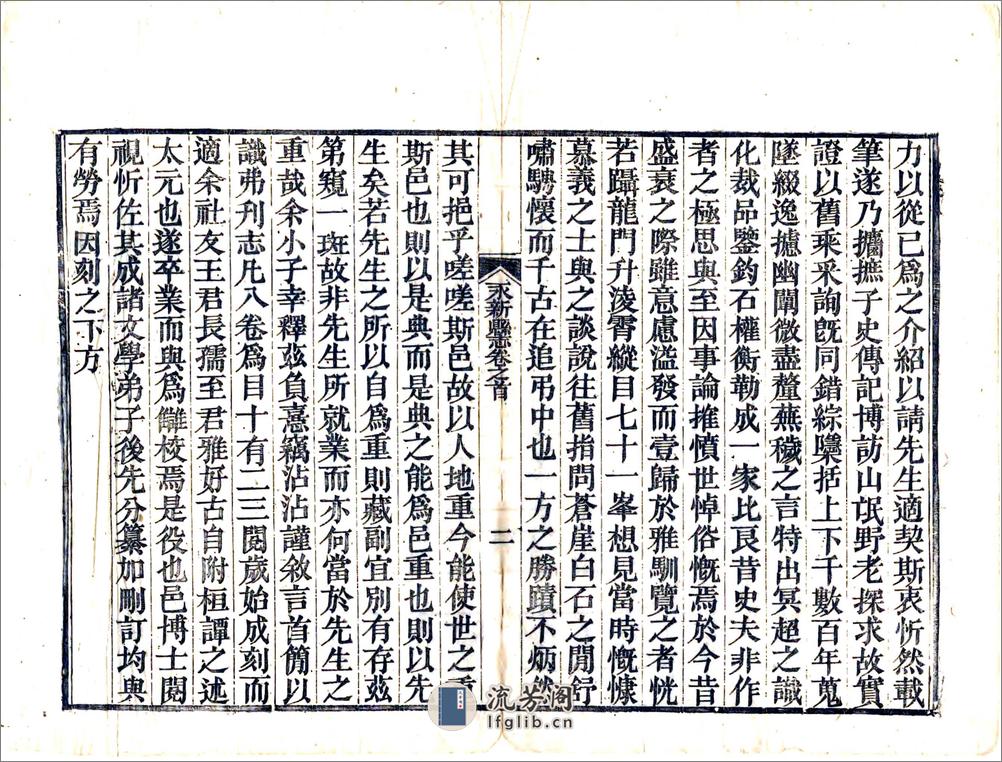 力以從已爲之介紹以請先生適契斯衷忻然載
筆遂乃攟摭子史傳記博訪山氓野老探求故實
證以舊乘采詢旣同錯綜櫽括上下千數百年蒐
墜綴逸攄幽闡微盡釐蕪穢之言特出冥超之識
化裁品鑒鈞石權衡勒成一家比艮昔史夫非作
者之極思與至因事論搉憤世悼俗慨焉於今昔
盛衰之際雖意慮溢發而壹歸於雅馴覽之者恍
若躡龍門升淩霄縱目七十一峯想見當時慨慷
慕義之士與之談說往舊指問蒼崖白石之閒舒
嘯騁懷而千古在追弔中也一方之勝蹟不炳然
永新縣志卷之首
二
其可挹乎嗟嗟斯邑故以人地重今能使世之重
斯邑也則以是典而是典之能爲邑重也則以先
生矣若先生之所以自爲重則藏副宜別有存茲
第窺一斑故非先生所就業而亦何當於先生之
重哉余小子幸釋茲負憙竊沾沾謹敘言首簡以
識弗刊志凡八卷爲目十有二三閱歲始成刻而
適余社友王君長孺至君雅好古自附桓譚之述
太元也遂卒業而與爲讎校焉是役也邑博士閱
視忻佐其成諸文學弟子後先分纂加刪訂均與
有勞焉因刻之下方
流芳阁
lfglib.cn